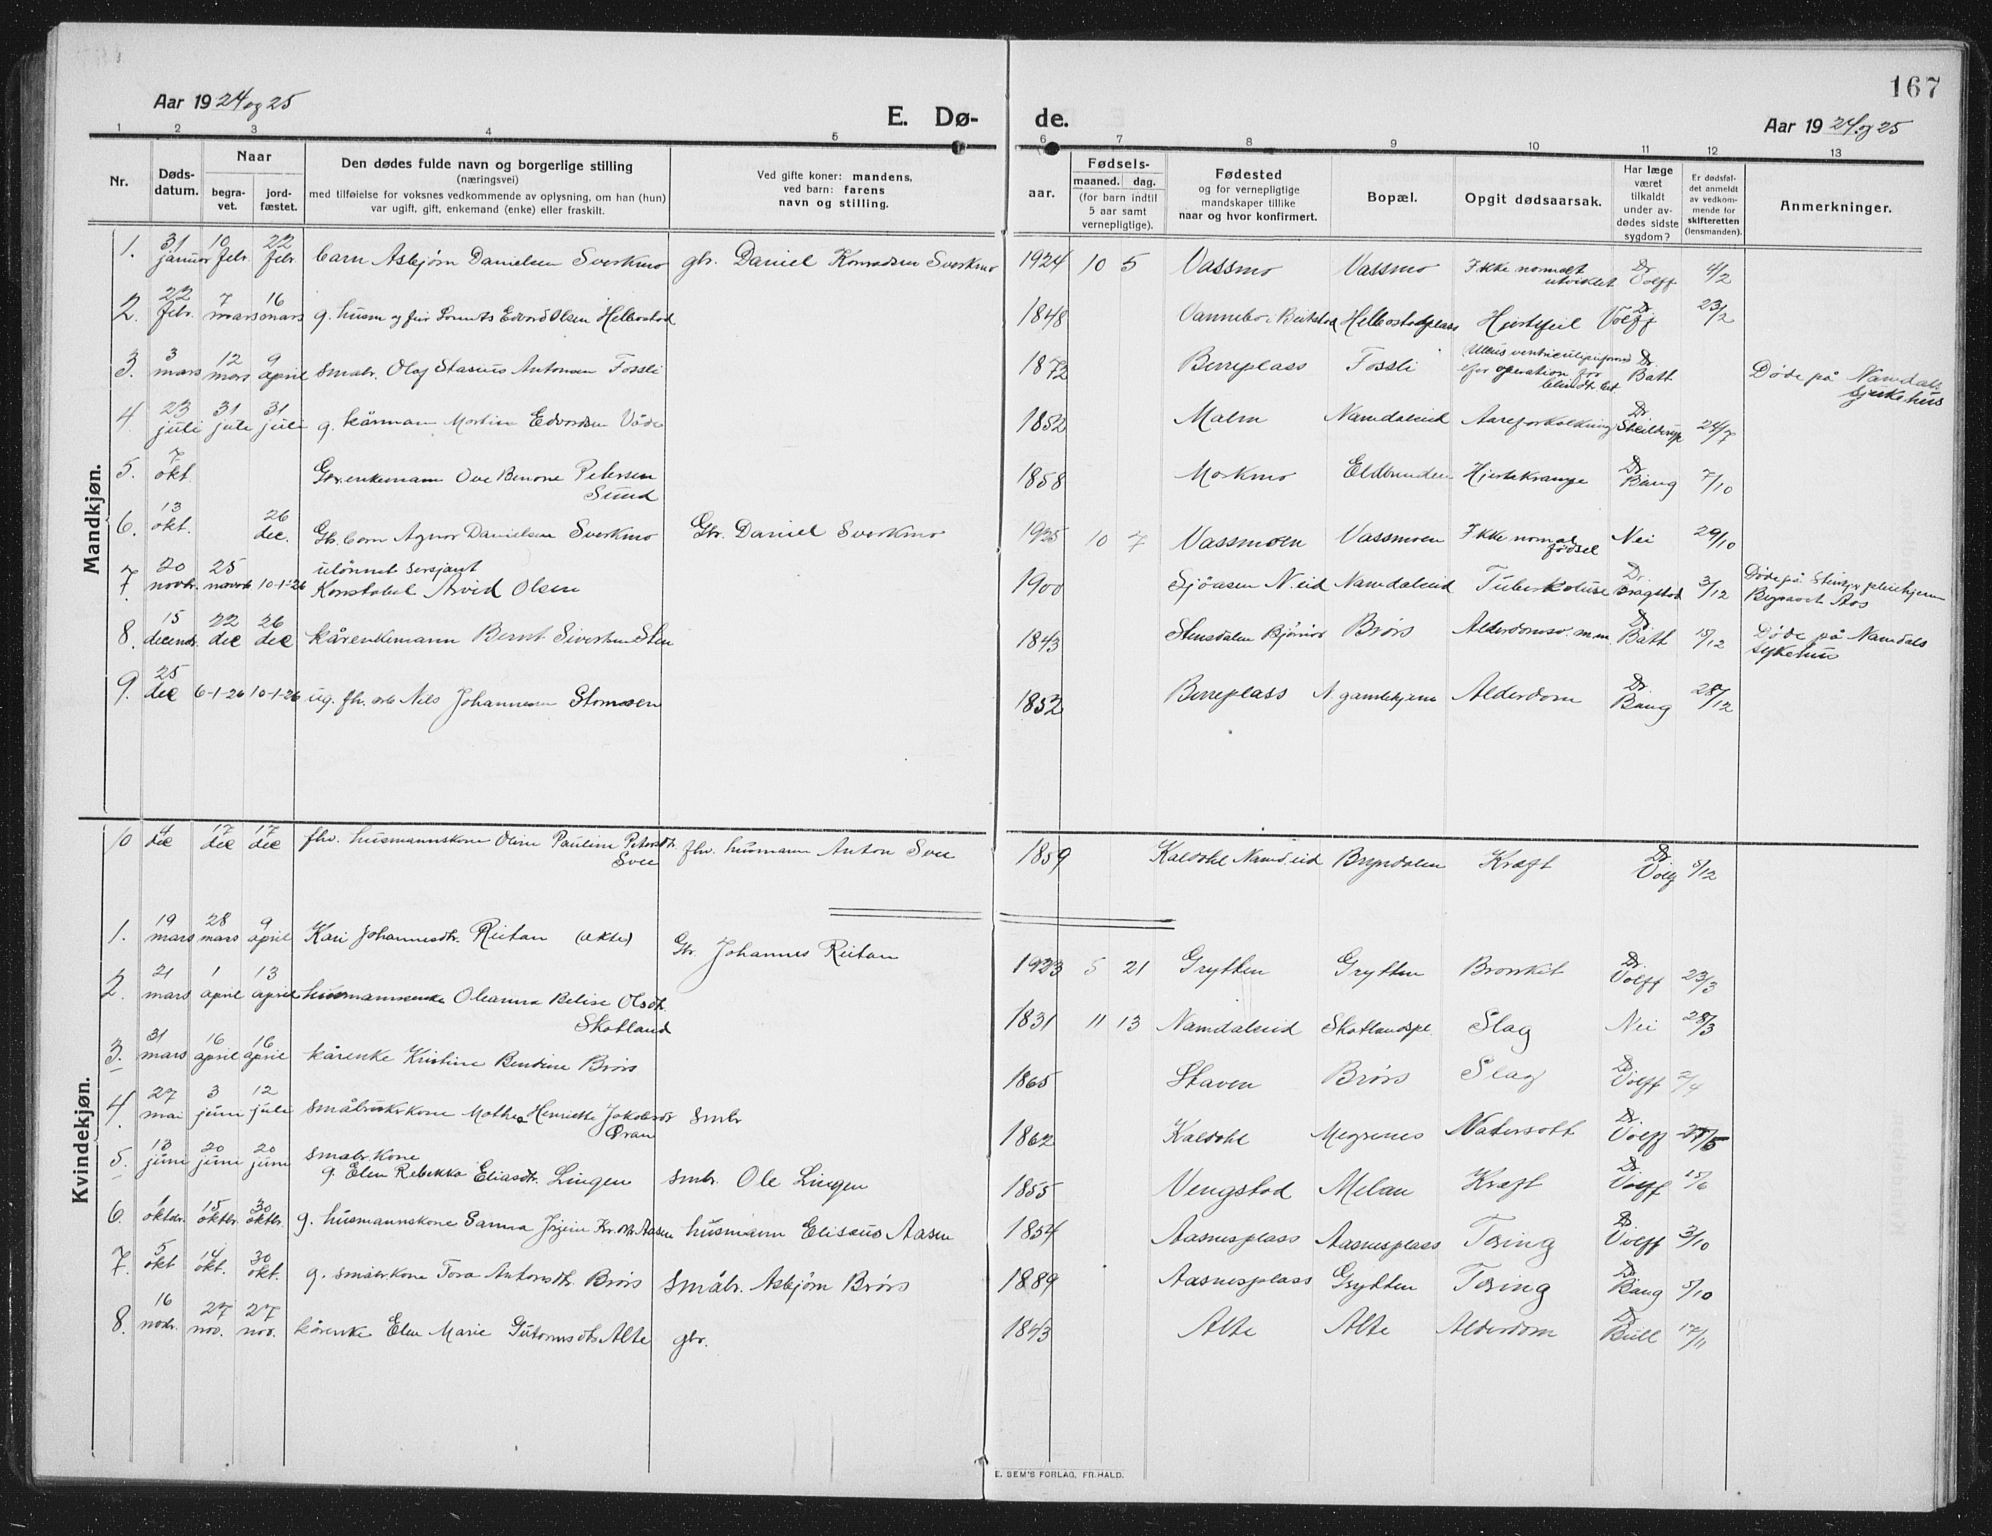 167
Aar 1924 og 25
E. Dø- de.
Aar 1924 og 25
1 2 3 4 5 6 7 8 9 10 11 12 13
Nr.
Døds-
datum.
Naar
begra-
vet.
jord-
fæstet.
Den dødes fulde navn og borgerlige stilling
(næringsvei)
med tilføielse for voksnes vedkommende av oplysning, om han (hun)
var ugift, gift, enkemand (enke) eller fraskilt.
Ved gifte koner: mandens,
ved barn: farens
navn og stilling.
aar.
Fødsels-
maaned. dag.
(for barn indtil
5 aar samt
vernepligtige).
Fødested
og for vernepligtige
mandskaper tillike
naar og hvor konfirmert.
Bopæl.
Opgit dødsaarsak.
Har læge
været
tilkaldt
under av-
dødes sidste
sygdom?
Er dødsfal-
det anmeldt
av vedkom-
mende for
skifteretten
(lensmanden).
Anmerkninger.
Mandkjøn.
1. 31 januar 10 febr. 22 febr. barn Asbjørn Danielsen Sverkmo gbr. Daniel Konradsen Sverkmo 1924 10 5 Vassmo Vassmo Ikke normalt utviklet Dr Volff 4/2
2. 22 febr. 7 mars 16 mars g. husm og Edvard Olsen Helbostad 1848 Helbostadplass Hjertefeil Dr Volff 23/2
3. 3 mars 12 mars 9 april smabr. Olaf Stasius Antonsen Fossli 1872 Berreplass Fossli Ulcus ventriculi operation for Dr Batt Døde på Namdals sjukehus
4. 23 juli 31 juli 31 juli g. kårmann Morten Edvardsen Våde 1852 Malm Namdaleid Aareforkalkning Dr 24/7
5. 7 okt. Gbr. enkemann Ove Benone Petersen Sund 1858 Morkmo Eldbunden Hjertekrampe Dr Bang 7/10
6. 13 okt. 26 dec. Gb. barn Agnor Danielsen Sverkmo Gbr. Daniel Sverkmo 1925 10 7 Vassmoen Vassmoen Ikke normal fødsel Nei 29/10
7. 20 novbr. 25 novbr 10-1-26 ulønnet sersjant Konstabel Arvid Olsen 1900 Sjøaasen N.eid Namdaleid Tuberkulose Dr Dragstad 3/12 Døde på pleiehjem Begravet Aas
8. 15 decembr. 22 dec 26 dec kårenkemann Bernt Sivertsen Sten 1843 Stensdalen Bjørnør Brørs Alderdomssv. m.m. Dr Batt 15/12 Døde på Namdals sykehus
9. 25 dec 6-1-26 10-1-26 ug. fh. arb Nils Johannesen Stomsen 1852 Berreplass N. gamlehjem Alderdom Dr Bang 28/12
10 4 dec 17 dec 17 dec fhv. husmannskone Oline Pauline Petersdtr. Svee fhv. husmann Anton Svee 1859 Kaldahl Namd.eid Bryndalen Kræft Dr Volff 5/12
Kvindekjøn.
1. 19 mars 28 mars 9 april Kari Johannesdtr. Reitan (ækte) Gbr. Johannes Reitan 1923 5 21 Grytten Grytten Bronkit Dr Volff 23/3
2. 21 mars 1 april 13 april husmannsenke Oleanna Belise Olsdtr. Skotland 1831 11 13 Namdaleid Skotlandspl. Slag Nei 28/3
3. 31 mars 16 april 16 april kårenke Kristine Bendine Brørs 1865 Staven Brørs Slag Dr Volff 2/4
4. 27 mai 3 juni 12 juli småbrukskone Mathea Henriette Jakobsdtr Øran smbr 1862 Kaldahl Megrenes Vatersott Dr Volff 28/5
5. 13 juni 20 juni 20 juni smabr. kone g. Elen Rebekka Eliasdtr. Lingen smbr. Ole Lingen 1855 Vengstad Melan Kræft Dr Volff 15/6
6. 1 oktbr. 15 oktbr. 30 oktbr. g. husmannskone Sanna Aasen husmann Eliseus Aasen 1854 Aasnesplass Aasnesplass Tæring Dr Volff 3/10
7. 5 okt 14 okt. 30 okt. g. småbr. kone Tora Antonsdtr. Brørs Småbr. Asbjørn Brørs 1889 Aasnesplass Grytten Tæring Dr Bang 5/10
8. 16 novbr. 27 nov. 27 nov. kårenke Elen Marie Gutormsdtr Alte gbr. 1843 Alte Alte Alderdom Dr Bull 17/11
E. SEM'S FORLAG, FR.HALD.